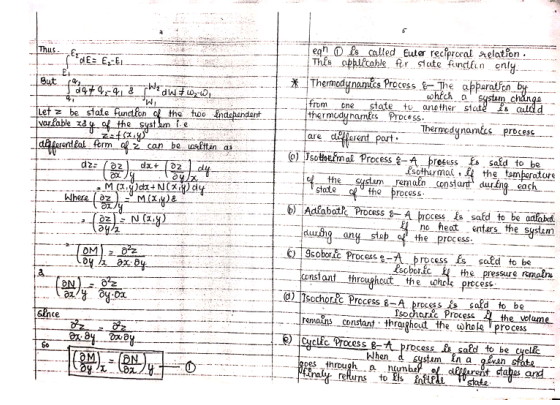 Thus.
∫_{E1}^{E2} dE = E2-E1
But ∫_{q1}^{q2} dq ≠ q2-q1 & ∫_{W1}^{W2} dW ≠ w2-w1
Let z be state function of the two independent
variable x & y of the system i.e
z = f(x,y)
differential form of z can be written as
dz = (∂z/∂x)_y dx + (∂z/∂y)_x dy
= M(x,y)dx + N(x,y)dy
Where (∂z/∂x)_y = M(x,y) &
= (∂z/∂y)_x = N(x,y)
(∂M/∂y)_x = ∂²z/∂x·∂y
&
(∂N/∂x)_y = ∂²z/∂y·∂x
Since
∂²z/∂x·∂y = ∂²z/∂x∂y
So
(∂M/∂y)_x = (∂N/∂x)_y — ①
eqn ① is called Euler reciprocal relation.
This applicable for state function only
* Thermodynamics Process :- The apperation by
which a system change
from one state to another state is called
thermodynamics Process.
Thermodynamics process
are different part.
Isothermal Process :- A process is said to be
isothermal, if the temperature
of the system remain constant during each
state of the process.
b) Adiabatic Process :- A process is said to be
if no heat enters the system
during any step of the process.
c) Isoboric Process :- A process is said to be
isoboric if the pressure remains
constant throughout the whole process.
(d) Isochoric Process :- A process is said to be
Isochoric Process if the volume
remains constant throughout the whole process
Cyclic Process :- A process is said to be cyclic
When a system in a given state
goes through a number of different stages and
finaly returns to its initial state